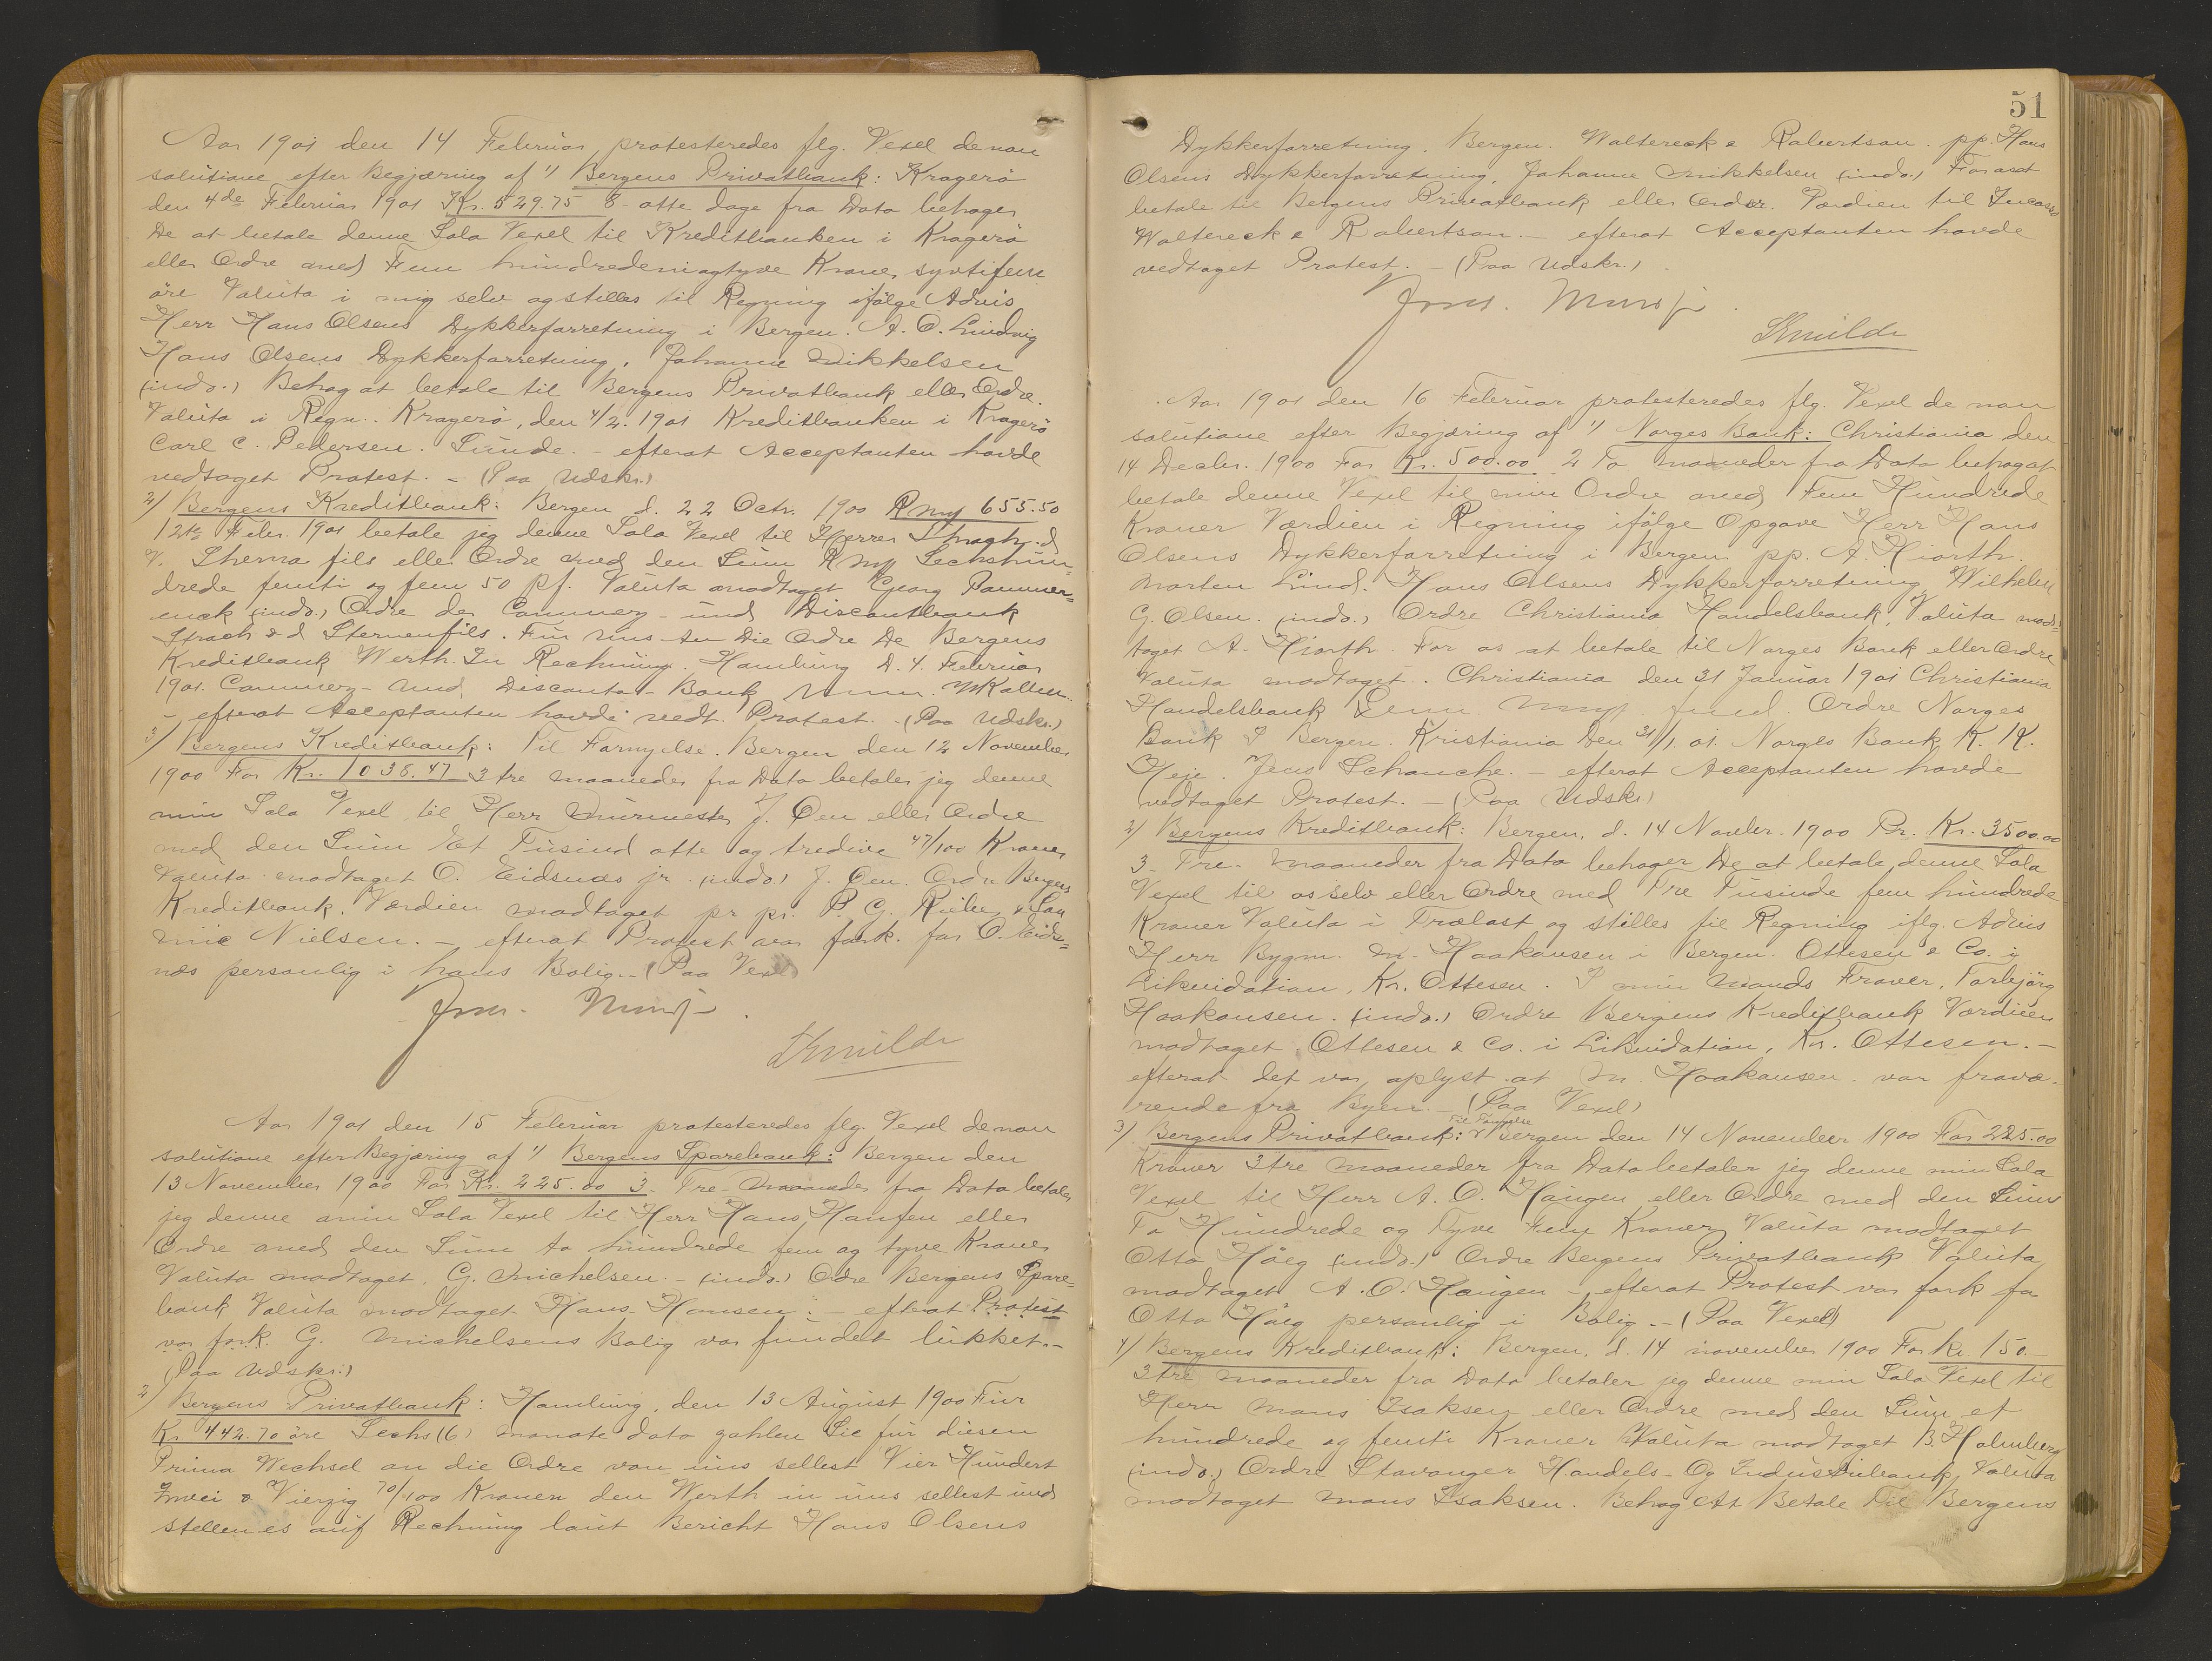 Aar 1901 den 14 Februar protesteredes flg. Vexel de non
solutione efter Begjæring af 1) Bergens Privatbank: Kragerö
den 4de Februar 1901 Kr. 529.75 8 - otte dage fra Dato behager
De at betale denne Sola Vexel til Kreditbanken i Kragerö
eller Ordre med Fem hundredeniogtyve Kroner, syvtifem
öre Valuta i mig selv og stilles til Regning ifölge Advis
Herr Hans Olsens Dykkerforretning i Bergen. A. O. Lindvig
Hans Olsens Dykkerforretning, Johanne Mikkelsen
(indo.) Behag at betale til Bergens Privatbank eller Ordre.
Valuta i Regn. Kragerö, den 4/2. 1901 Kreditbanken i Kragerö
Carl C. Pedersen. Lunde. - efterat Acceptanten havde
vedtaget Protest. - (Paa Udskr.)
2/ Bergens Kreditbank: Bergen d. 22 Octr. 1900 Rmk 655.50
12te Feber. 1901 betale jeg denne Sola Vexel til Herrer
V. fils eller Ordre med den Sum Rmk Sechshun-
drede femti og fem 50 pf. Valuta modtaget Georg Pommer=
enck (indo.) Ordre der Commerz- und Discontbank
Strach & d Sternenfils. Für uns an Die Ordre De Bergens
Kreditbank Werth In Rechnung. Hamburg d. 4. Februar
1901. Commerz- und Disconto-Bank
- efterat Acceptanten havde vedt. Protest. - (Paa Udskr.)
3/ Bergens Kreditbank: Til Fornyelse. Bergen den 12 November
1900 For Kr. 1038.47 3 tre maaneder fra Dato betaler jeg denne
min Sola Vexel til Herr Murmester J. Øen eller Ordre
med den Sum Et Tusind otte og tredive 47/100 Kroner
Valuta modtaget O. Eidsnæs jr. (indo) J. Øen. Ordre Bergens
Kreditbank. Værdien modtaget pr pr. P. G. Rieber & Søn
Nielsen. - efterat Protest var fork. for O. Eids=
næs personlig i hans Bolig. - (Paa Vexel)
Aar 1901 den 15 Februar protesteredes flg. Vexel de non
solutione efter Begjæring af 1) Bergens Sparebank: Bergen den
13 November 1900 For Kr. 225.00 3 - Tre - maaneder fra Dato betaler
jeg denne min Sola Vexel til Herr Hans Hansen eller
Ordre med den Sum to hundrede fem og tyve Kroner
Valuta modtaget. G. Michelsen. - (indo.) Odre Bergens Spare=
bank Valuta modtaget Hans Hansen. - efterat Protest
var fork. G. Michelsens Bolig var fundet lukket. -
(Paa Udskr.)
2/ Bergens Privatbank: Hamburg, den 13 August 1900 Für
Kr. 442.70 öre Sechs (6) monate dato zahlen Sie für diesen
Prima Wechsel an die Ordre von uns selbst Vier Hundert
Zwei & Vierzig 70/100 Kronen den Werth in uns selbst und
stellen es auf Rechnung laut Bericht Hans Olsens
51
Dykkerforretning. Bergen. Waltereck & Robertson. pp. Hans
Olsens Dykkerforretning, Johanne Mikkelsen (indo.) For as at
betale til Bergens Privatbank eller Ordre. Værdien til Incasso
Waltereck & Robertson. - efterat Acceptanten havde
vedtaget Protest. - (Paa Udskr.)
Aar 1901 den 16 Februar protesteredes flg. Vexel de non
solutione efter Begjæring af 1) Norges Bank: Christiania den
14 Decbr. 1900 For Kr. 500.00 2 To maaneder fra Dato behag at
betale denne Vexel til min Ordre med Fem Hundrede
Kroner Værdien i Regning ifölge Opgave Herr Hans
Olsens Dykkerforretning i Bergen pp. A. Hiorth.
Morten Lind. Hans Olsens Dykkerforretning Wilhelm
G. Olsen. (indo.) Ordre Christiania Handelsbank, Valuta mod=
taget A. Hiorth. For os at betale til Norges Bank eller Ordre
Valuta modtaget. Christiania den 31 Januar 1901 Christiania
Handelsbank Ordre Norges
Bank I Bergen. Kristiania Den 31/1. 01. Norges Bank K. K.
Heje. Jens Schanche. - efterat Acceptanten havde
vedtaget Protest. - (Paa Udskr)
2/ Bergens Kreditbank: Bergen, d. 14 Novbr. 1900 Pr. Kr. 3500.00
3 - Tre - Maaneder fra Dato behager De at betale denne Sola
Vexel til os selv eller Ordre med Tre Tusinde fem hundrede
Kroner Valuta i Trælast og stilles til Regning iflg. Advis
Herr Bygm. M. Haakonsen i Bergen. Ottesen & Co. i
Likvidation, Kr. Ottesen. I min Mands Fravær, Torbjörg
Haakonsen. (indo.) Ordre Bergens Kreditbank Værdien
modtaget. Ottesen & Co. i Likvidation, Kr. Ottesen. -
efterat det var oplyst at M. Haakonsen var fravæ-
rende fra Byen. - (Paa Vexel)
Til Fornyelse
3/ Bergens Privatbank: Bergen den 14 November 1900 For 225.00
Kroner 3 tre maaneder fra Dato betaler jeg denne min Sola
Vexel til Herr A. O. Haugen eller Ordre med den Sum
To Hundrede og Tyve Fem Kroner Valuta modtaget
Otto Höeg (indo.) Ordre Bergens Privatbank Valuta
modtaget A. O. Haugen - efterat Protest var fork for
Otto Höeg personlig i Bolig. - (Paa Vexel)
4/ Bergens Kreditbank: Bergen, d. 14 november 1900 For kr. 150.-
3 tre maaneder fra Dato betaler jeg denne min Sola Vexel til
Herr Mons Isaksen eller Ordre med den Sum et
hundrede og femti Kroner Valuta modtaget B. Holmberg
(indo.) Ordre Stavanger Handels- Og Industribank, Valuta
modtaget Mons Isaksen. Behag At Betale Til Bergens